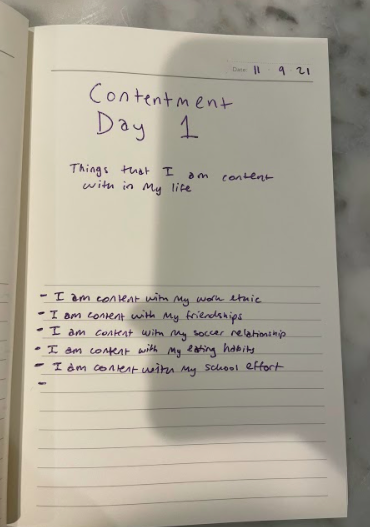 Date: 11 9 21
Contentment
Day 1
Things that I am content
with in My life
- I am content with my work ethic
- I am content with my friendships
- I am content with my soccer relationship
- I am content with my eating habits
- I am content with my school effort
-